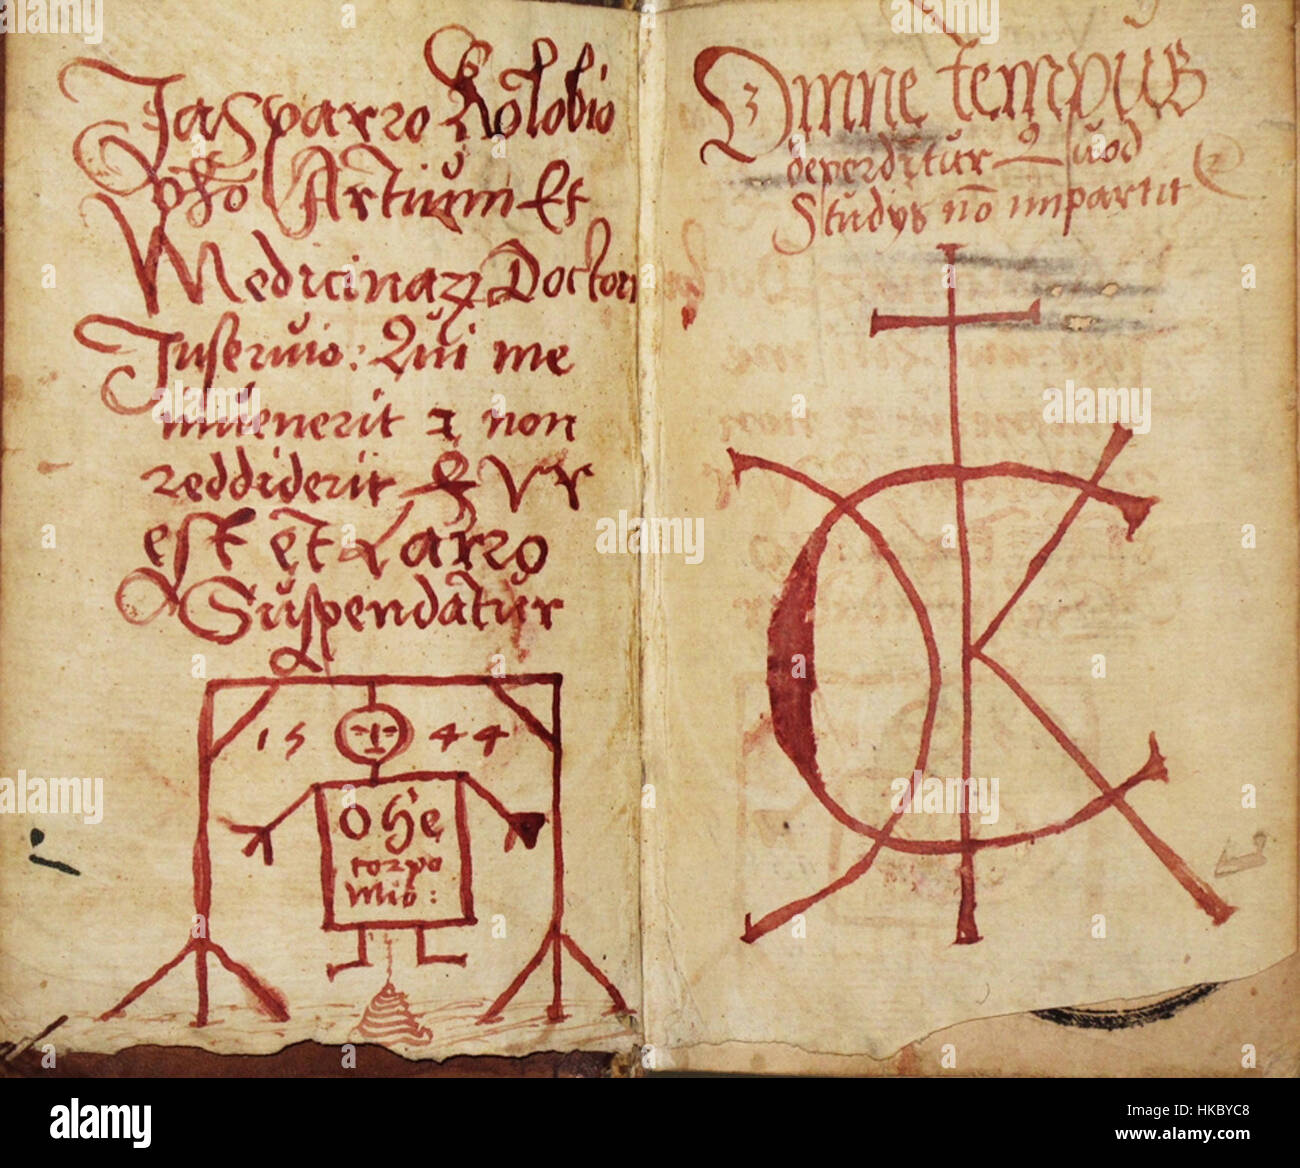 Jasparro Kolobio
Artium Et
Medicinaꝝ Doctori
Inservio: Qui me
invenerit ⁊ non
reddiderit & Vr
est et Latro
Suspendatur
1544
O he
corpo
mio:
Omne tempus
deperditur Quod
Studys nō impartit
alamy stock photo
HKBYC8
www.alamy.com